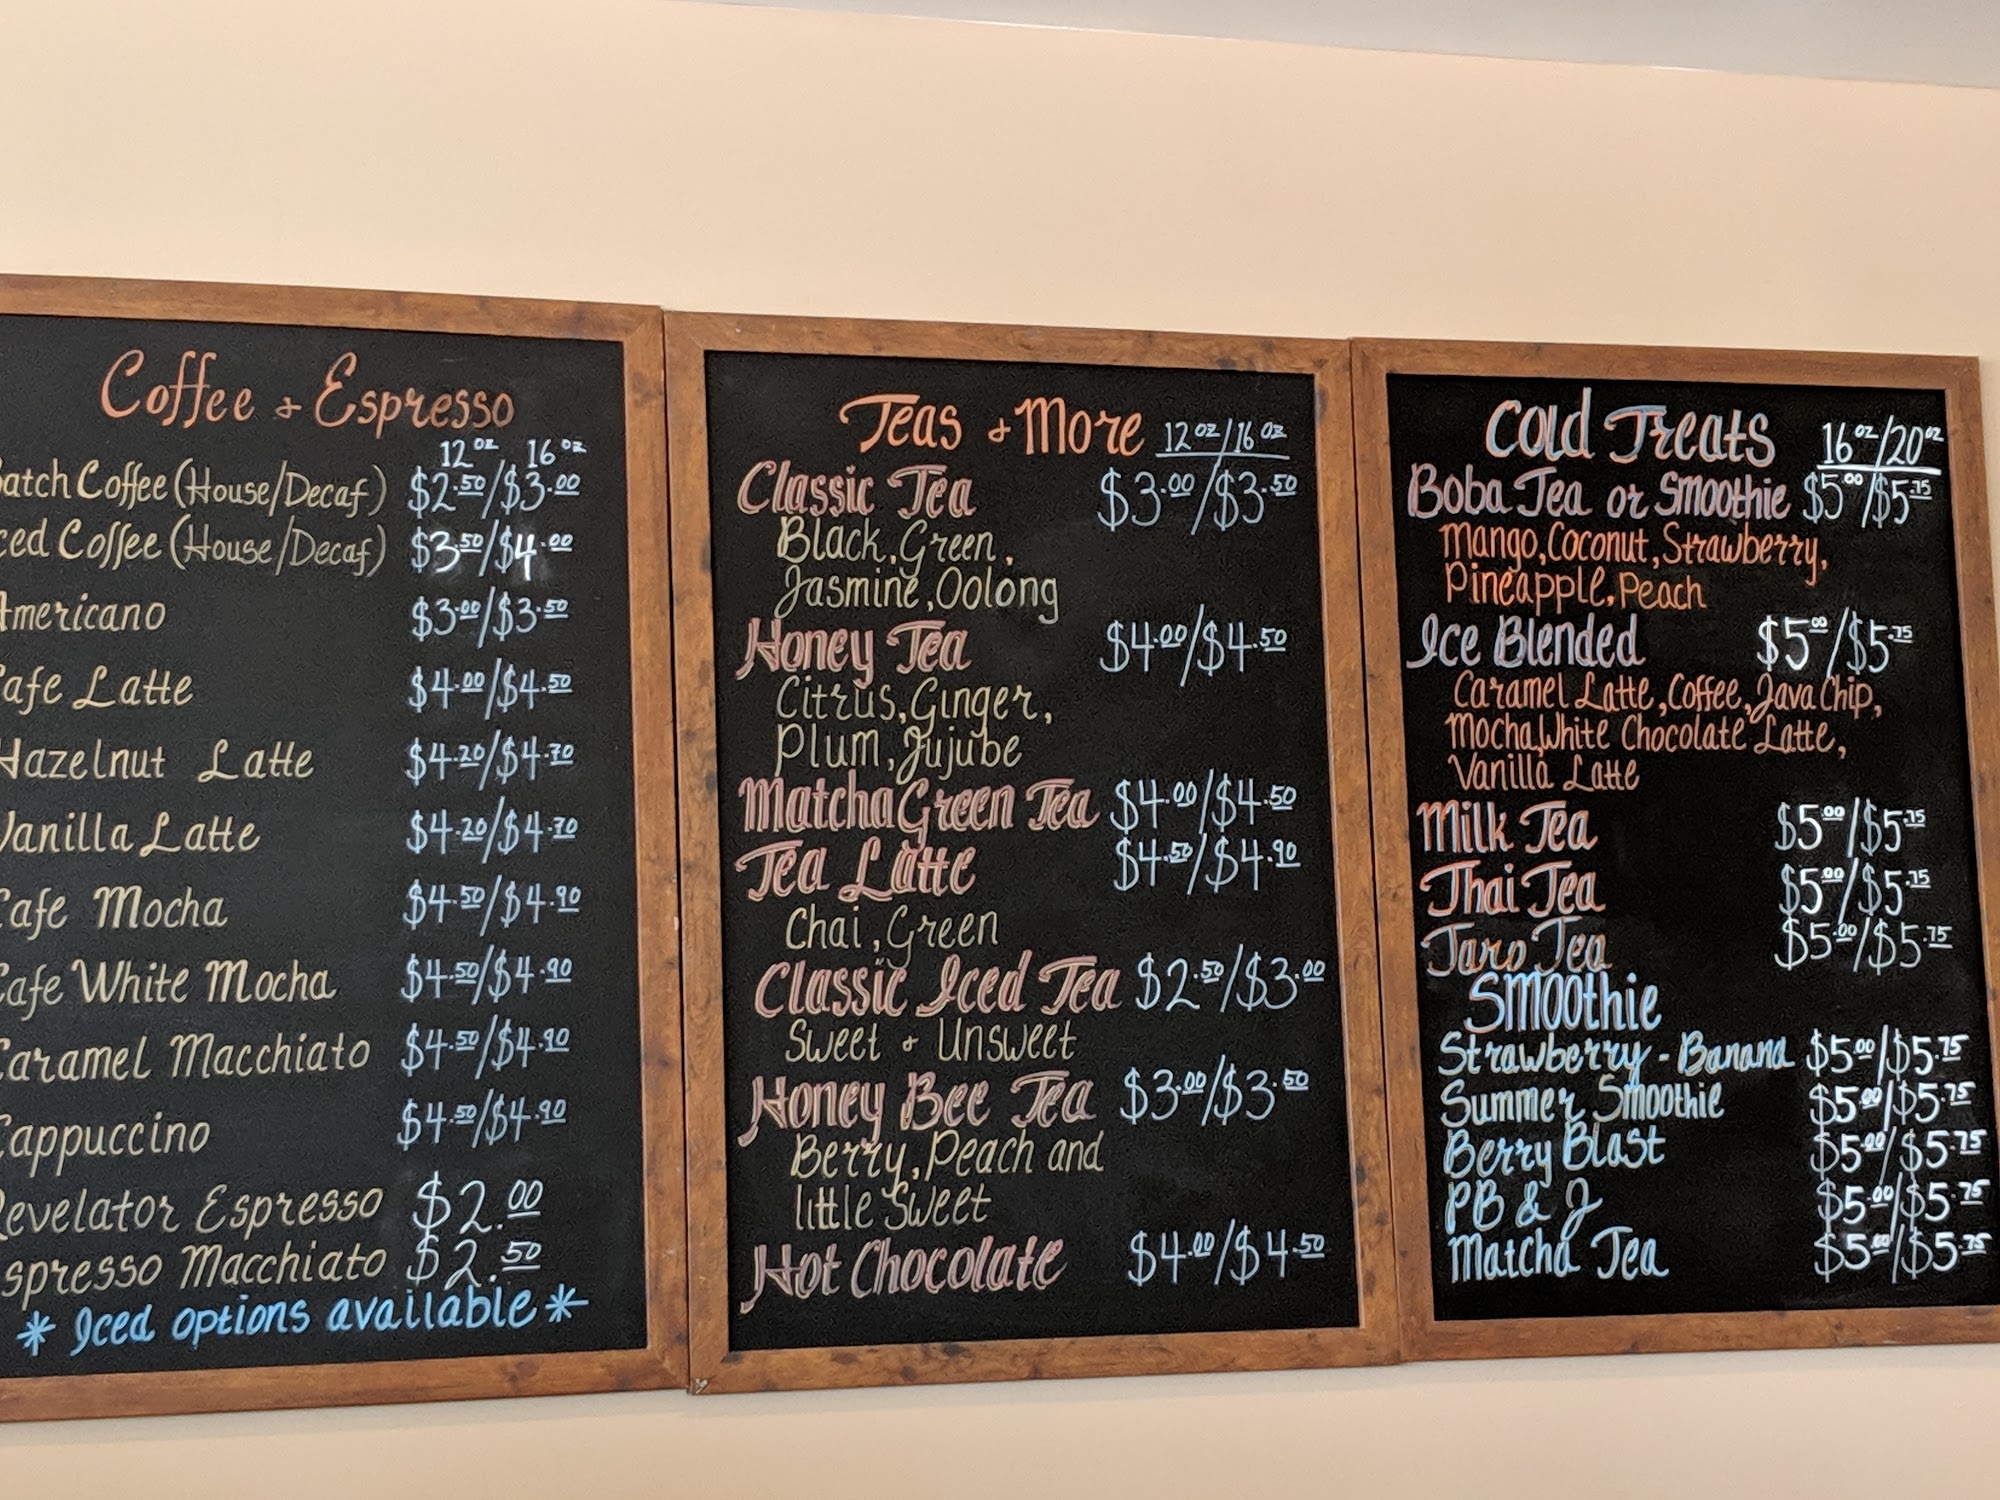 Coffee & Espresso
12 oz 16 oz
atch Coffee (House/Decaf) $2.50/$3.00
ced Coffee (House/Decaf) $3.50/$4.00
Americano $3.00/$3.50
afe Latte $4.00/$4.50
Hazelnut Latte $4.20/$4.70
Vanilla Latte $4.20/$4.70
Cafe Mocha $4.50/$4.90
Cafe White Mocha $4.50/$4.90
Caramel Macchiato $4.50/$4.90
Cappuccino $4.50/$4.90
Revelator Espresso $2.00
spresso Macchiato $2.50
* Iced options available *
Teas & More 12 oz/16 oz
Classic Tea $3.00/$3.50
Black, Green,
Jasmine, Oolong
Honey Tea $4.00/$4.50
Citrus, Ginger,
Plum, Jujube
Matcha Green Tea $4.00/$4.50
Tea Latte $4.50/$4.90
Chai, Green
Classic Iced Tea $2.50/$3.00
Sweet & Unsweet
Honey Bee Tea $3.00/$3.50
Berry, Peach and
little Sweet
Hot Chocolate $4.00/$4.50
Cold Treats 16 oz/20 oz
Boba Tea or Smoothie $5.00/$5.75
Mango, Coconut, Strawberry,
Pineapple, Peach
Ice Blended $5.00/$5.75
Caramel Latte, Coffee, Java Chip,
Mocha, White Chocolate Latte,
Vanilla Latte
Milk Tea $5.00/$5.75
Thai Tea $5.00/$5.75
Taro Tea $5.00/$5.75
Smoothie
Strawberry - Banana $5.00/$5.75
Summer Smoothie $5.00/$5.75
Berry Blast $5.00/$5.75
PB & J $5.00/$5.75
Matcha Tea $5.00/$5.75